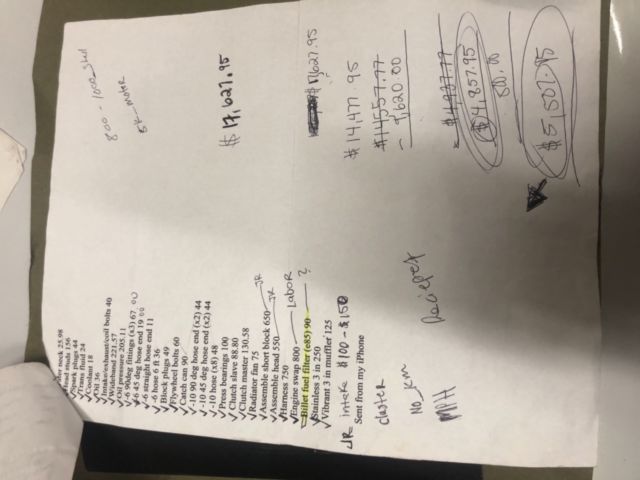 neck 25.98
Head studs 156
✓Spark plugs 44
✓Trans fluid 24
✓Coolant 18
✓Oil 36
✓Intake/exhaust/coil bolts 40
✓Wideband 221.57
✓Oil pressure 205.11
✓-6 90deg fittings (x3) 67.00
✓-6 45 deg hose end 19.00
✓-6 straight hose end 11
✓-6 hose 6 ft 36
✓Block plugs 49
✓Flywheel bolts 60
✓Catch can 90
✓-10 90 deg hose end (x2) 44
✓-10 45 deg hose end (x2) 44
✓-10 hose (x8) 48
✓Press bearings 100
✓Clutch slave 88.80
✓Clutch master 130.58
✓Radiator fan 75
✓Assemble short block 650 — JR
✓Assemble head 550 — JR
✓Harness 750
✓Engine swap 800 — Labor
Billet fuel filter (e85) 90 — ?
✓Stainless 3 in 250
✓Vibrant 3 in muffler 125
Sent from my iPhone
JR- intake $100 - $150
cluster
No_km
MPH
800 - 1000
motor
$17,627.95
$17,627.95
$14,477.95
$14,557.77
- 9,620.00
$4,937.77
$4,857.95
$5,507.95